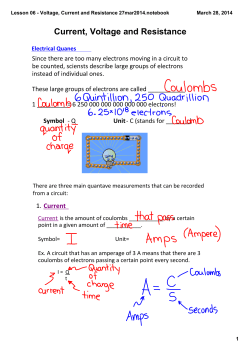 Lesson 06 - Voltage, Current and Resistance 27mar2014.notebook March 28, 2014
Current, Voltage and Resistance
Electrical Quanes
Since there are too many electrons moving in a circuit to
be counted, sciensts describe large groups of electrons
instead of individual ones.
These large groups of electrons are called Coulombs
6 Quintillion, 250 Quadrillion
1 Coulombs 6 250 000 000 000 000 000 electrons!
6.25×10¹⁸ electrons.
Symbol - Q Unit - C (stands for Coulomb)
quantity
of
charge
There are three main quantave measurements that can be recorded
from a circuit:
1. Current
Current is the amount of coulombs that pass a certain
point in a given amount of time.
Symbol= I Unit= Amps (Ampere)
Ex. A circuit that has an amperage of 3 A means that there are 3
coulombs of electrons passing a certain point every second.
I = Q
t
Quantity
of
charge
current
time
A = C
S
Coulombs
Amps
seconds
1